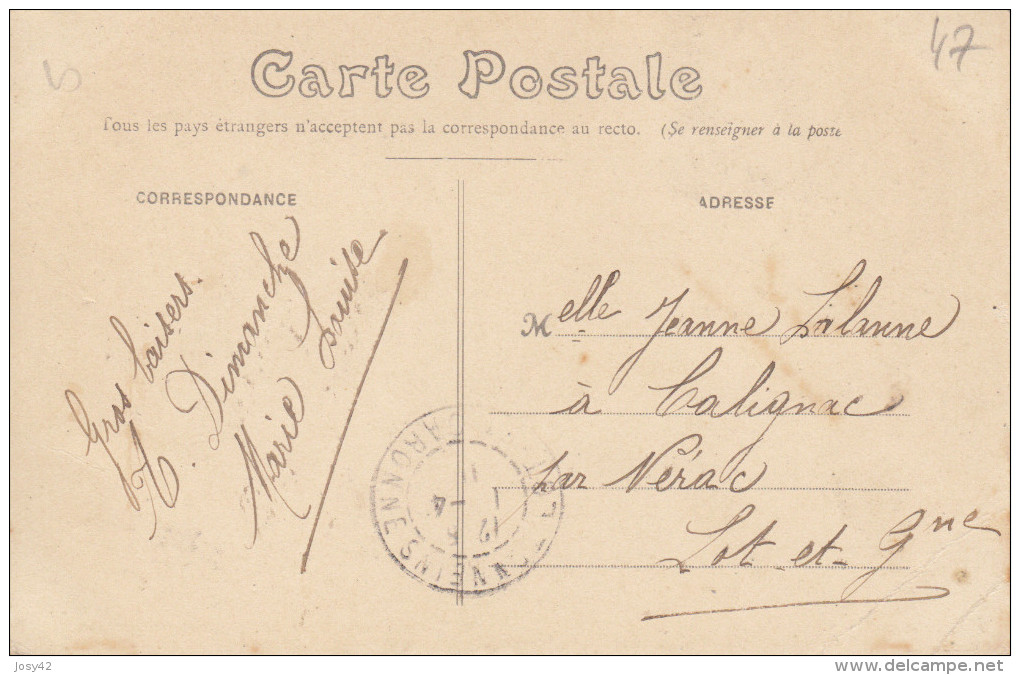 47
Carte Postale
Tous les pays étrangers n'acceptent pas la correspondance au recto. (Se renseigner à la poste
CORRESPONDANCE
ADRESSE
Gros baisers.
A Dimanche
Marie Louise
Melle Jeanne Lalanne
à Calignac
par Nérac
Lot-et-Gne
GARONNE
Josy42
www.delcampe.net